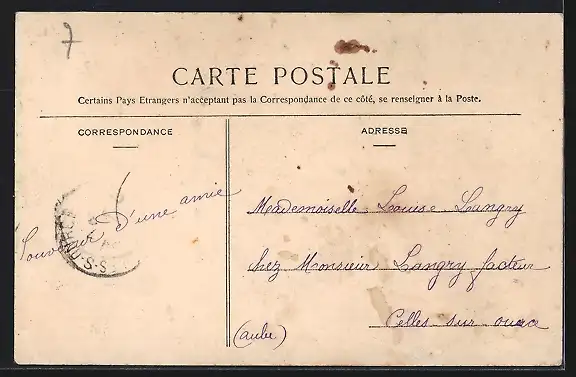 7
CARTE POSTALE
Certains Pays Etrangers n'acceptent pas la Correspondance de ce côté, se renseigner à la Poste.
CORRESPONDANCE
ADRESSE
Souvenir d'une amie
Mademoiselle Louise Langry
chez Monsieur Langry facteur
Celles sur ource
(aube)